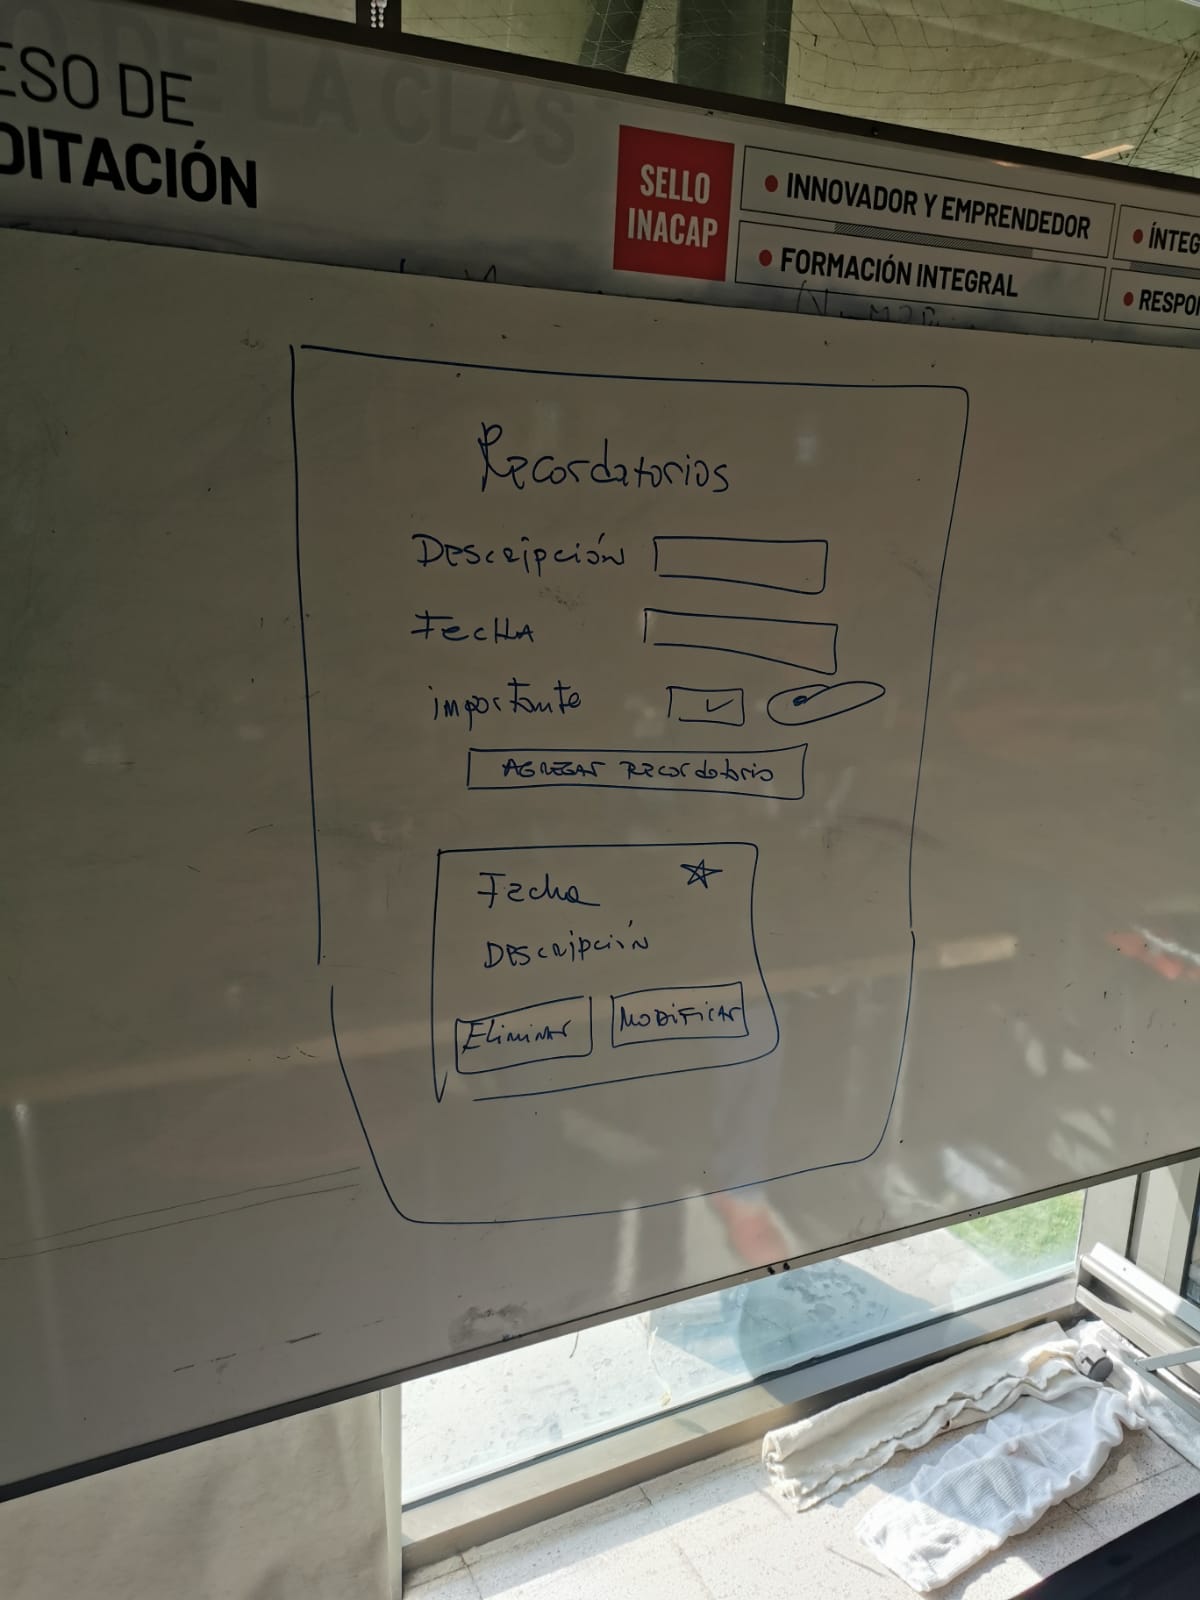 ESO DE
DITACIÓN
DE LA CLAS
SELLO
INACAP
INNOVADOR Y EMPRENDEDOR
FORMACIÓN INTEGRAL
ÍNTEG
RESPO
Recordatorios
Descripción
Fecha
importante
Agregar Recordatorio
Fecha
Descripción
Eliminar
Modificar